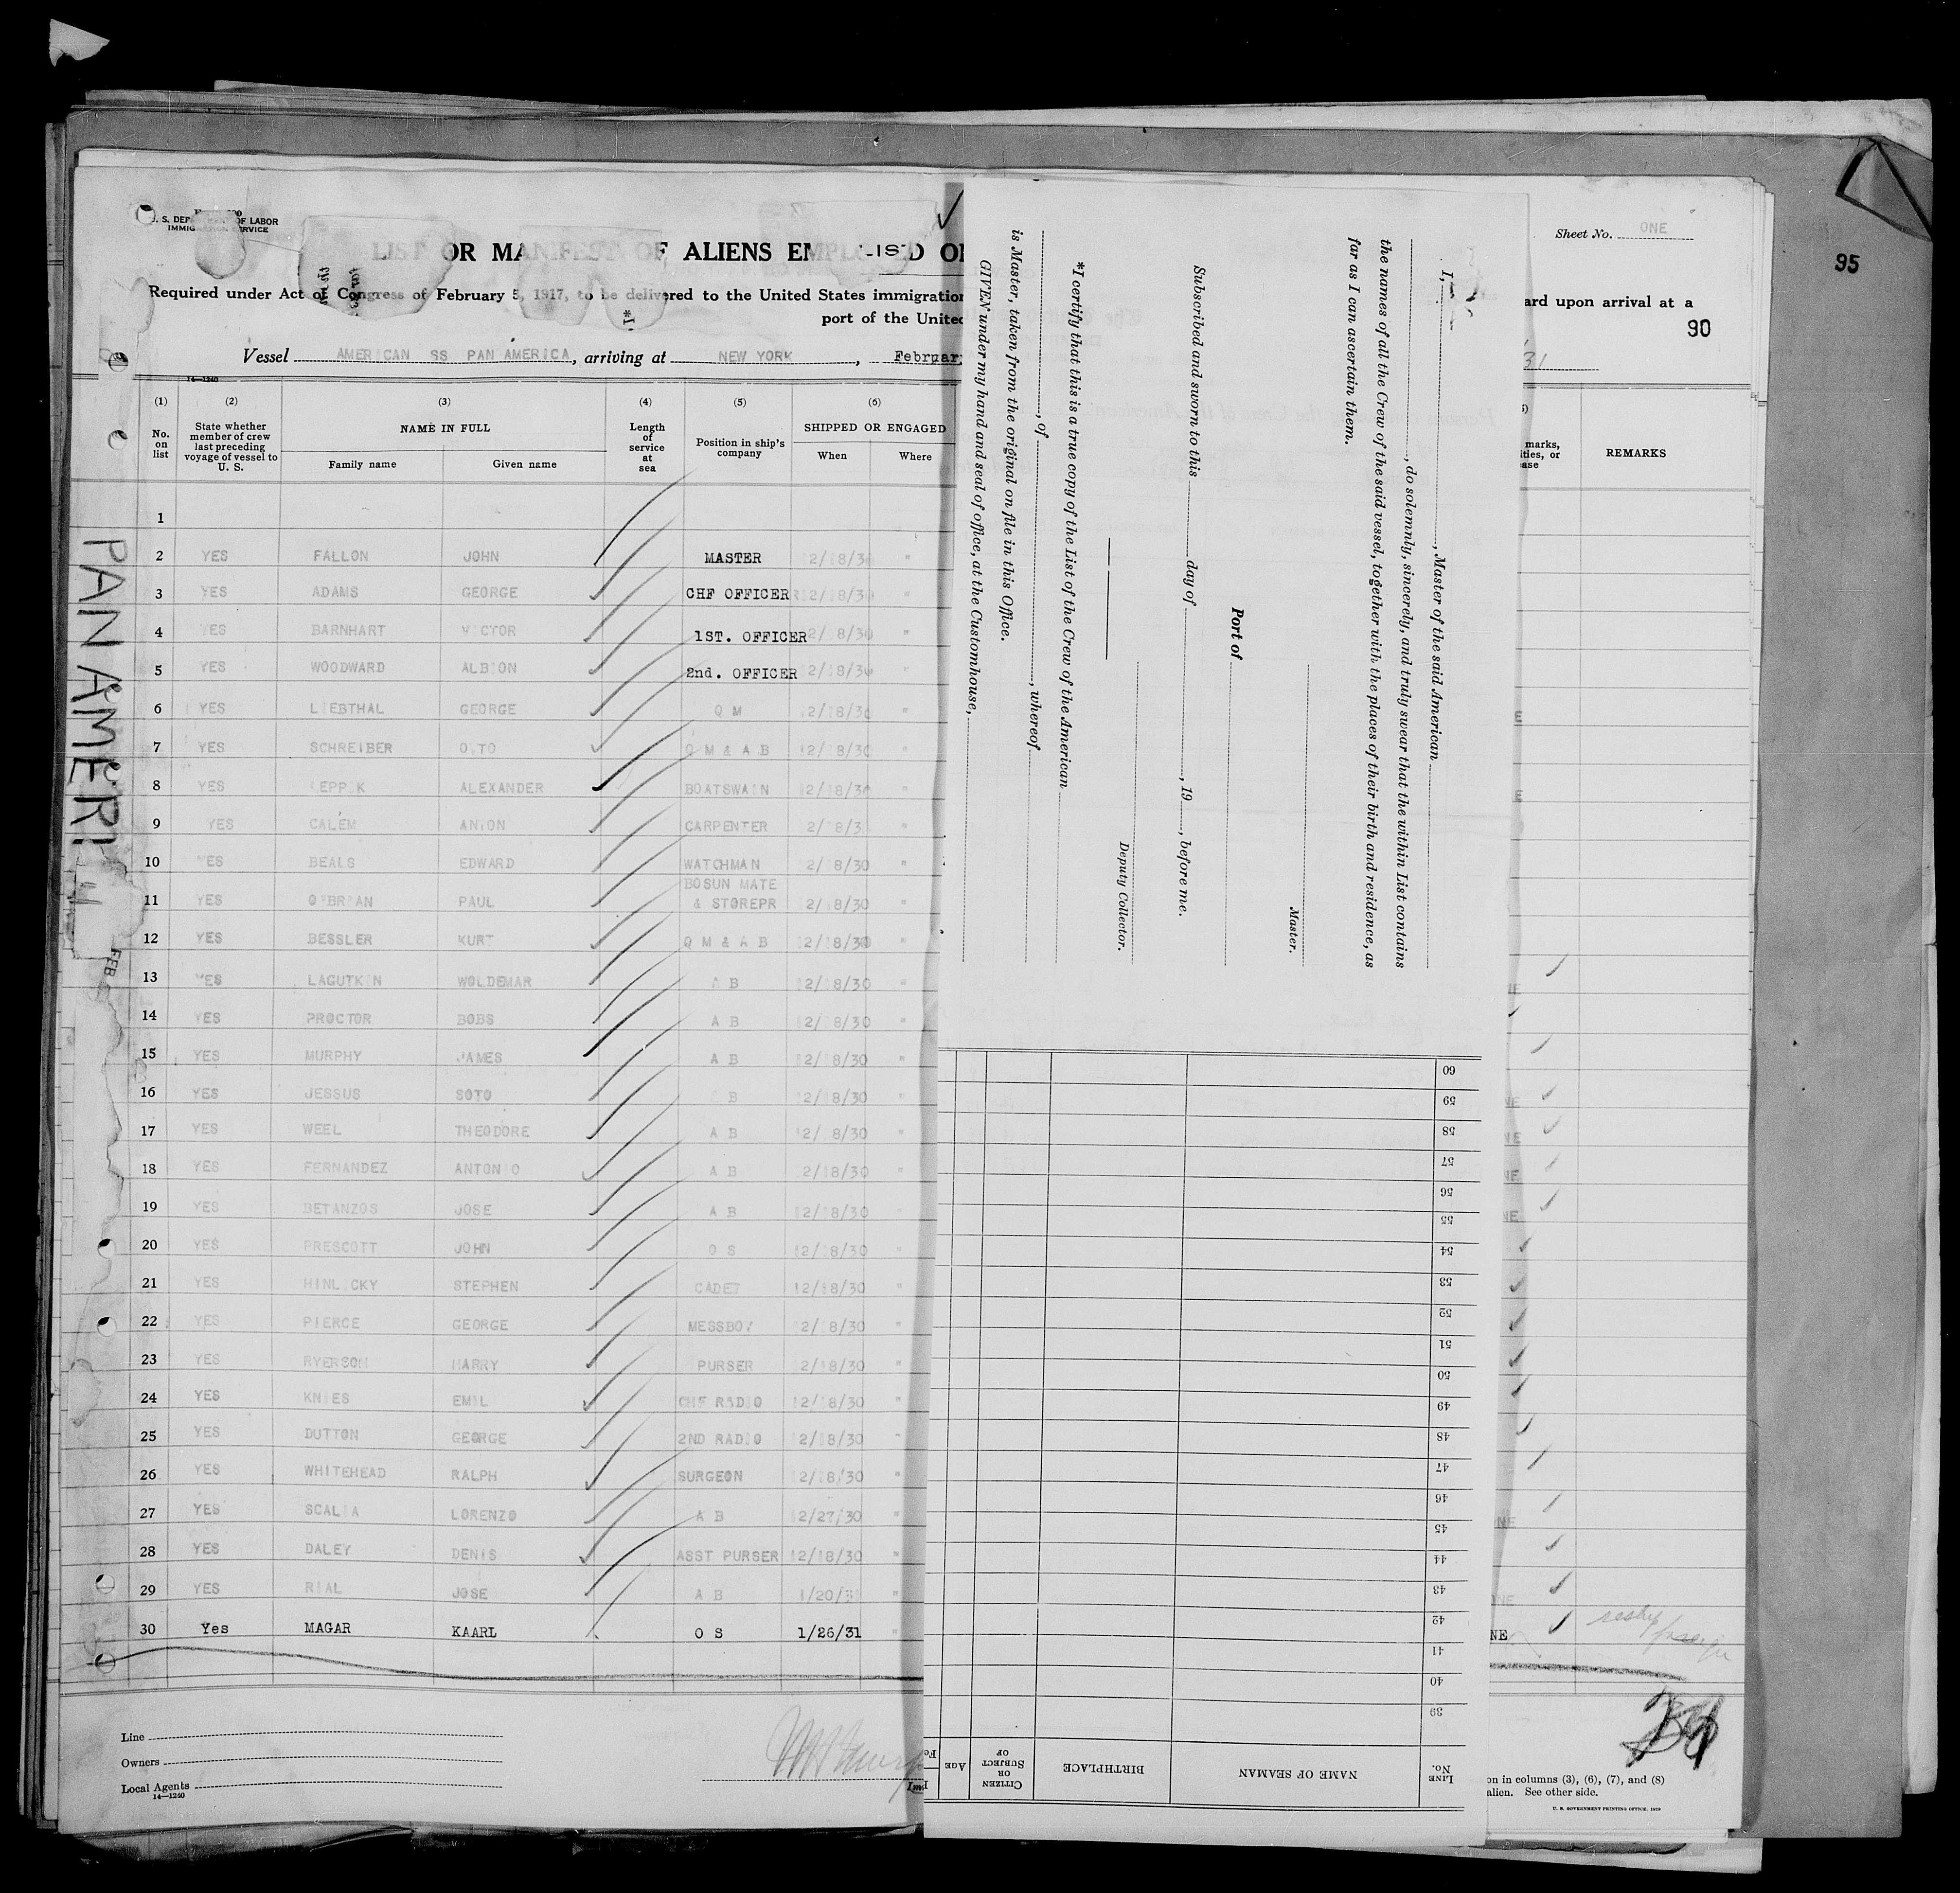 U. S. DEP OF LABOR
IMMIG SERVICE
LIST OR MANIFEST OF ALIENS EMPL
LIST
Required under Act of Congress of February 5, 1917, to be delivered to the United States immigration
port of the United
Vessel AMERICAN SS PAN AMERICA, arriving at NEW YORK, February
14—1240
(1) (2) (3) (4) (5) (6)
No. on list
State whether member of crew last preceding voyage of vessel to U. S.
NAME IN FULL
Family name Given name
Length of service at sea
Position in ship's company
SHIPPED OR ENGAGED
When Where
1
2 YES FALLON JOHN MASTER 12/18/30 "
3 YES ADAMS GEORGE CHF OFFICER 12/18/30 "
4 YES BARNHART VICTOR 1ST. OFFICER 12/18/30 "
5 YES WOODWARD ALBION 2nd. OFFICER 12/18/30 "
6 YES LIEBTHAL GEORGE Q M 12/18/30 "
7 YES SCHREIBER OTTO Q M & A B 12/18/30 "
8 YES LEPPIK ALEXANDER BOATSWAIN 12/18/30 "
9 YES CALEM ANTON CARPENTER 12/18/30 "
10 YES BEALS EDWARD WATCHMAN 12/18/30 "
11 YES O'BRIAN PAUL BOSUN MATE & STOREPR 12/18/30 "
12 YES BESSLER KURT Q M & A B 12/18/30 "
13 YES LAGUTKIN WOLDEMAR A B 12/18/30 "
14 YES PROCTOR BOBS A B 12/18/30 "
15 YES MURPHY JAMES A B 12/18/30 "
16 YES JESSUS SOTO A B 12/18/30 "
17 YES WEEL THEODORE A B 12/18/30 "
18 YES FERNANDEZ ANTONIO A B 12/18/30 "
19 YES BETANZOS JOSE A B 12/18/30
20 YES PRESCOTT JOHN O S 12/18/30 "
21 YES HINLICKY STEPHEN CADET 12/18/30 "
22 YES PIERCE GEORGE MESSBOY 12/18/30 "
23 YES RYERSON HARRY PURSER 12/18/30 "
24 YES KNIES EMIL CHF RADIO 12/18/30 "
25 YES DUTTON GEORGE 2ND RADIO 12/18/30 "
26 YES WHITEHEAD RALPH SURGEON 12/18/30 "
27 YES SCALIA LORENZO A B 12/27/30 "
28 YES DALEY DENIS ASST PURSER 12/18/30 "
29 YES RIAL JOSE A B 1/20/31 "
30 Yes MAGAR KAARL O S 1/26/31 "
Line
Owners
Local Agents
14—1240
PAN AMERI
FEB
I, , Master of the said American
, do solemnly, sincerely, and truly swear that the within List contains
the names of all the Crew of the said vessel, together with the places of their birth and residence, as
far as I can ascertain them.
Master.
Port of
Subscribed and sworn to this day of , 19 , before me.
Deputy Collector.
*I certify that this is a true copy of the List of the Crew of the American
, of , whereof
is Master, taken from the original on file in this Office.
GIVEN under my hand and seal of office, at the Customhouse,
60
59
58
57
56
55
54
53
52
51
50
49
48
47
46
45
44
43
42
41
40
39
LINE No. NAME OF SEAMAN BIRTHPLACE CITIZEN OR SUBJECT OF AGE
Sheet No. ONE
95
ard upon arrival at a
90
31
marks,
ities, or
ase
REMARKS
NE
on in columns (3), (6), (7), and (8)
alien. See other side.
U. S. GOVERNMENT PRINTING OFFICE: 1929